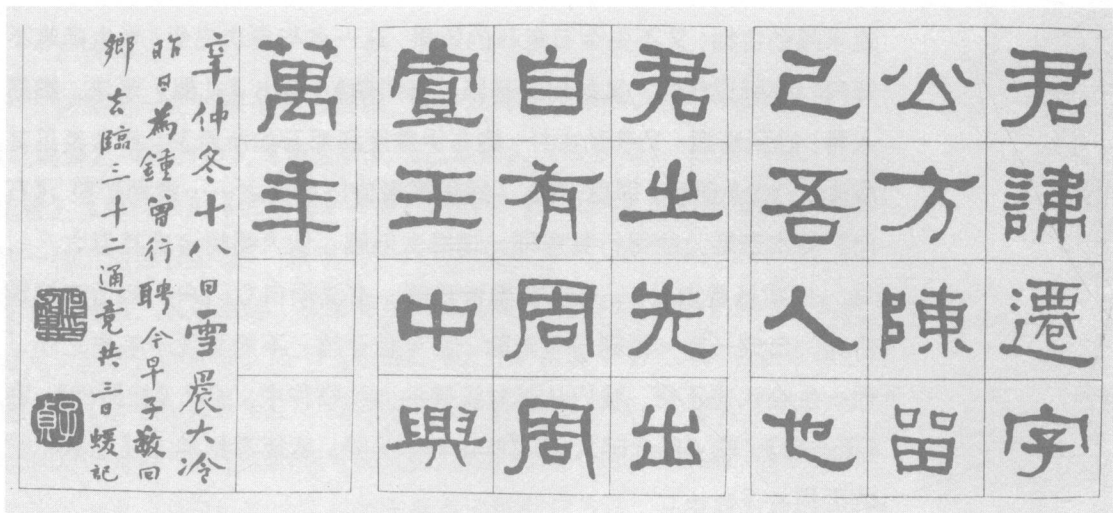 君諱遷字
公方陳留
己吾人也
君之先出
自有周周
宣王中興
萬年
辛仲冬十八日雪晨大冷
昨日為鍾曾行聘今早子敬回
鄉去臨三十二通竟共三日蝯記